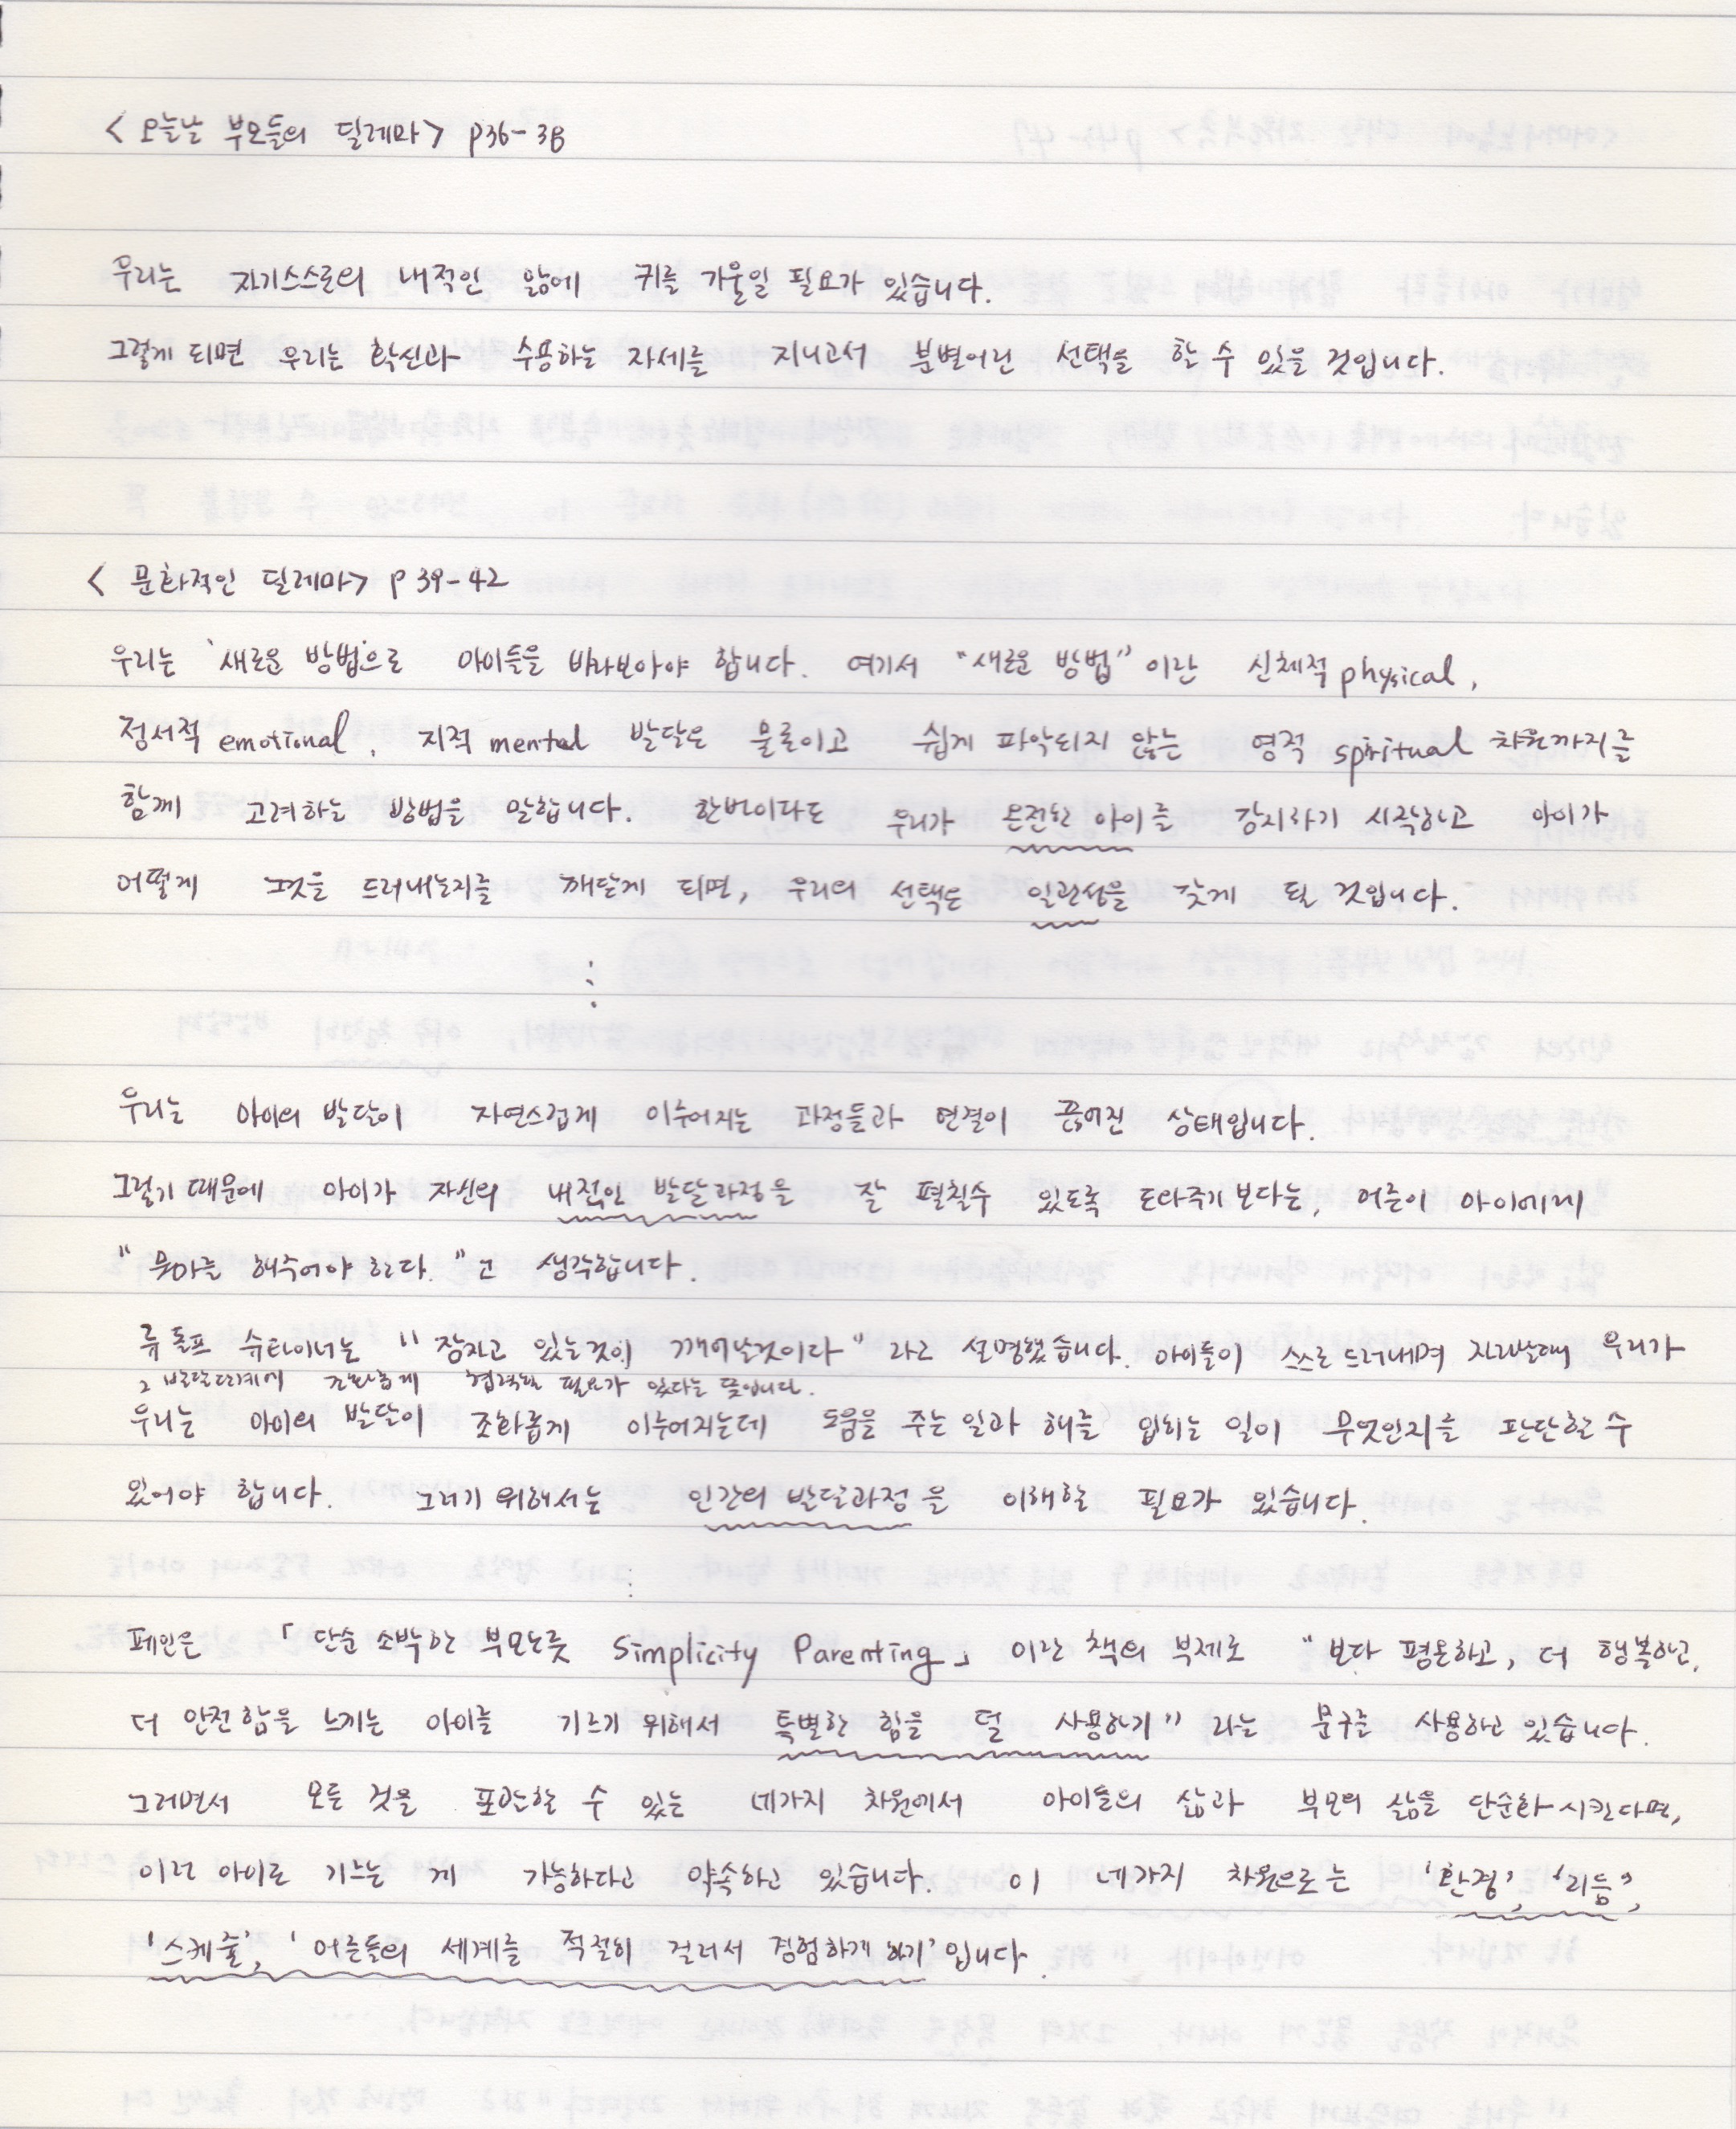 < 오늘날 부모들의 딜레마> p36-38
우리는 자기스스로의 내적인 앎에 귀를 기울일 필요가 있습니다.
그렇게 되면 우리는 확신과 수용하는 자세를 지니고서 분별어린 선택을 할 수 있을 것입니다.
< 문화적인 딜레마> p 39-42
우리는 '새로운 방법'으로 아이들을 바라보아야 합니다. 여기서 "새로운 방법" 이란 신체적 physical,
정서적 emotional, 지적 mental 발달은 물론이고 쉽게 파악되지 않는 영적 spiritual 차원까지를
함께 고려하는 방법을 말합니다. 한번이라도 우리가 온전한 아이를 감지하기 시작하고 아이가
어떻게 그것을 드러내는지를 깨닫게 되면, 우리의 선택은 일관성을 갖게 될 것입니다.
⋮
우리는 아이의 발달이 자연스럽게 이루어지는 과정들과 연결이 끊어진 상태입니다.
그렇기 때문에 아이가 자신의 내적인 발달과정을 잘 펼칠수 있도록 도와주기 보다는, 어른이 아이에게
" 뭔가를 해주어야 한다. "고 생각합니다.
루돌프 슈타이너는 " 잠자고 있는것이 깨어날것이다 " 라고 설명했습니다. 아이들이 스스로 드러내며 자라날때 우리가
그 발달단계에 조화롭게 협력할 필요가 있다는 뜻입니다.
우리는 아이의 발달이 조화롭게 이루어지는데 도움을 주는 일과 해를 입히는 일이 무엇인지를 판단할 수
있어야 합니다. 그러기 위해서는 인간의 발달과정을 이해할 필요가 있습니다.
⋮
페인은 「단순 소박한 부모노릇 Simplicity Parenting」 이란 책의 부제로 " 보다 평온하고, 더 행복하고,
더 안전함을 느끼는 아이를 기르기 위해서 특별한 힘을 덜 사용하기" 라는 문구를 사용하고 있습니다.
그러면서 모든 것을 포괄할 수 있는 네가지 차원에서 아이들의 삶과 부모의 삶을 단순화 시킨다면,
이런 아이로 기르는 게 가능하다고 약속하고 있습니다. 이 네가지 차원으로는 '환경', '리듬',
'스케줄', ' 어른들의 세계를 적절히 걸러서 경험하게 하기' 입니다.